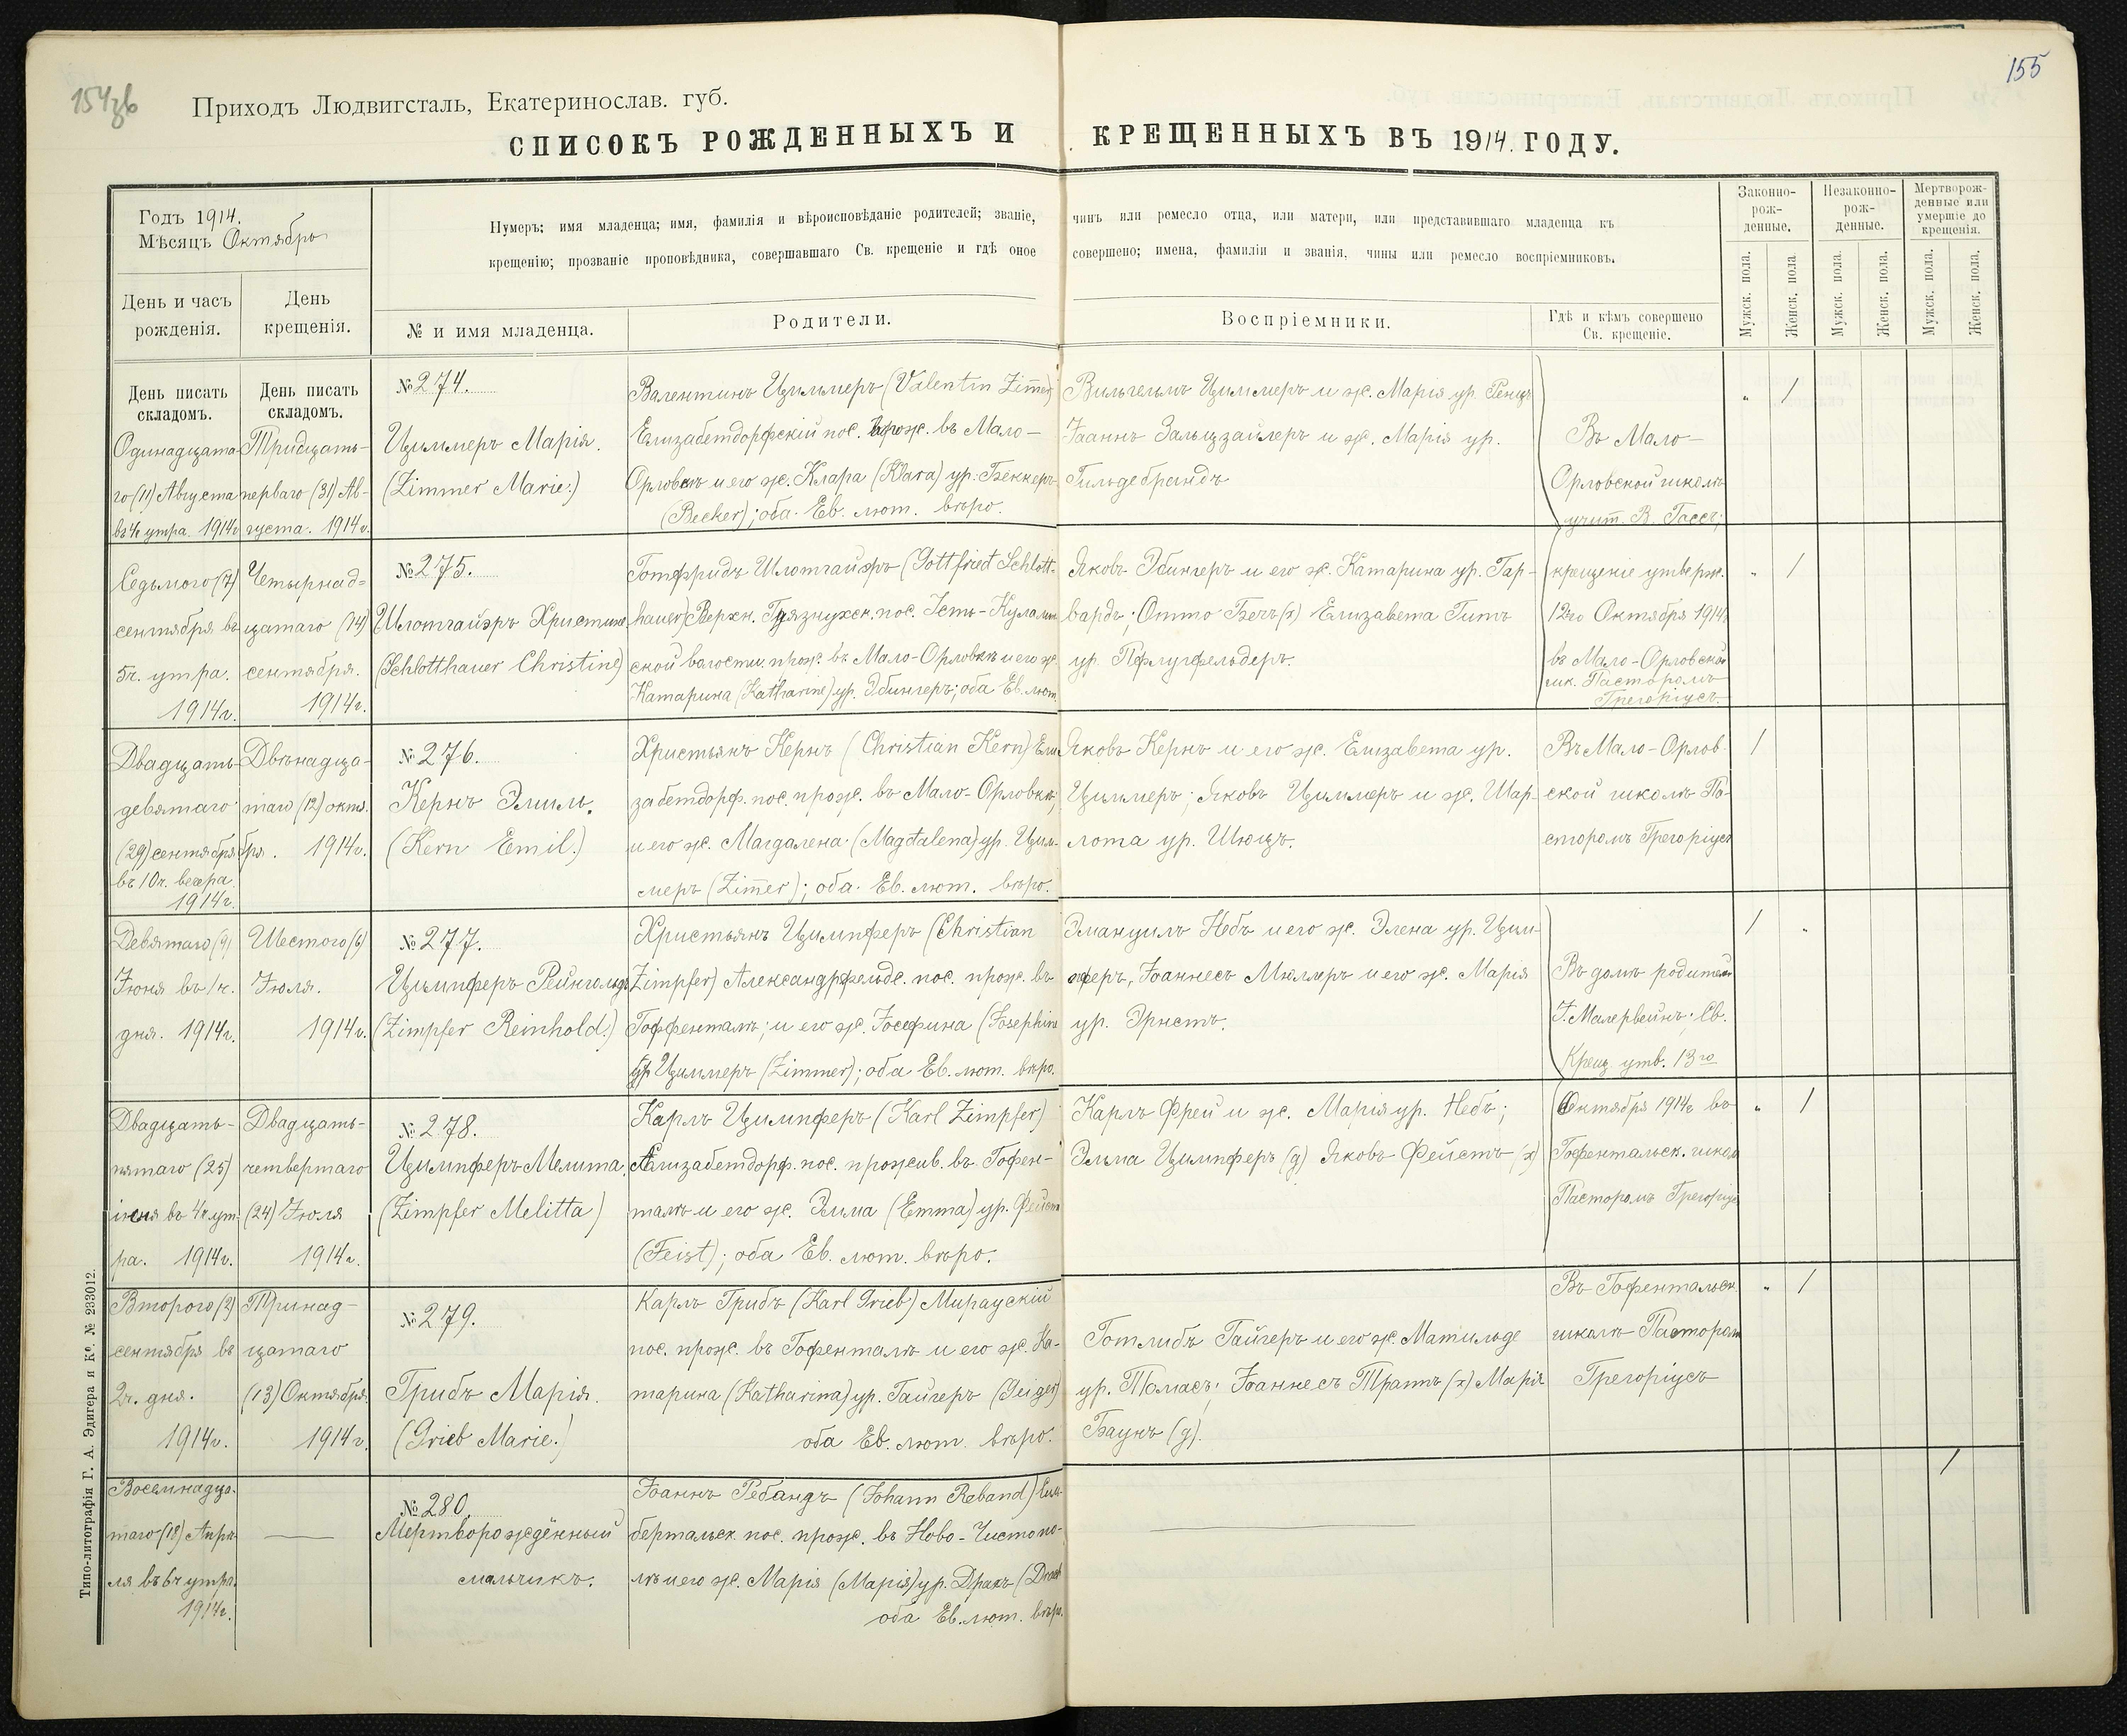 154об
155
Приходъ Людвигсталь, Екатеринослав. губ.
СПИСОКЪ РОЖДЕННЫХЪ И КРЕЩЕННЫХЪ ВЪ 1914. ГОДУ.
Годъ 1914.
Мѣсяцъ Октябрь
Нумеръ; имя младенца; имя, фамилія и вѣроисповѣданіе родителей; званіе, чинъ или ремесло отца, или матери, или представившаго младенца къ
крещенію; прозваніе проповѣдника, совершавшаго Св. крещеніе и гдѣ оное совершено; имена, фамиліи и званія, чины или ремесло воспріемниковъ.
Законно-
рож-
денные.
Незаконно-
рож-
денные.
Мертворож-
денные или
умершіе до
крещенія.
Мужск. пола.
Женск. пола.
Мужск. пола.
Женск. пола.
Мужск. пола.
Женск. пола.
День и часъ
рожденія.
День
крещенія.
№ и имя младенца.
Родители.
Воспріемники.
Гдѣ и кѣмъ совершено
Св. крещеніе.
День писать
складомъ.
Одинадцата-
го (11) Августа
въ 4ч утра. 1914г
День писать
складомъ.
Тридцать-
перваго (31) Ав-
густа. 1914г.
№ 274.
Циммеръ Марія.
(Zimmer Marie.)
Валентинъ Циммеръ (Valentin Zim̅er)
Елизабетдорфскій пос. прож. въ Мало-
Орловкѣ и его ж. Клара (Klara) ур. Беккеръ
(Becker); оба Ев. лют. вѣро.
Вильгельмъ Циммеръ и ж. Марія ур. Ренцъ
Іоаннъ Зальцзайлеръ и ж. Марія ур.
Гильдебрандъ
Въ Мало-
Орловской школѣ
учит. В. Гассъ;
" /
Седьмого (7)
сентября въ
5ч. утра.
1914г.
Четырнад=
цатаго (14)
сентября.
1914г.
№ 275.
Шлотгауэръ Христине
(Schlotthauer Christine)
Готфридъ Шлотгауэръ (Gottfried Schlott-
hauer) Верхн. Грязнухск. пос. Усть-Кулалин
ской волости. прож. въ Мало-Орловкѣ и его ж.
Катарина (Katharine) ур. Эбингеръ; оба Ев. лют.
Яковъ Эбингеръ и его ж. Катарина ур. Гар-
вардъ; Отто Бечъ (х) Елизавета Гитъ
ур. Пфлугфельдеръ.
крещеніе утверж.
12го Октября 1914г
въ Мало-Орловской
шк. Пасторомъ
Грегоріусъ.
" /
Двадцать-
девятаго
(29) сентября
въ 10ч. вечера.
1914г.
Двѣнадца-
таго (12) октя.
бря. 1914г.
№ 276.
Кернъ Эмиль.
(Kern Emil.)
Христьянъ Кернъ (Christian Kern) Ели
забетдорф. пос. прож. въ Мало-Орловкѣ;
и его ж. Магдалена (Magdalena) ур. Цим-
меръ (Zim̅er); оба Ев. лют. вѣро.
Яковъ Кернъ и его ж. Елизавета ур.
Циммеръ; Яковъ Циммеръ и ж. Шар-
лота ур. Шюцъ.
Въ Мало-Орлов
ской школѣ Па-
сторомъ Грегоріусъ
/
Девятаго (9)
Іюня въ 1ч.
дня. 1914г.
Шестого (6)
Іюля.
1914г.
№ 277.
Цимпферъ Рейнгольдъ
(Zimpfer Reinhold.)
Христьянъ Цимпферъ (Christian
Zimpfer) Александрфельдс. пос. прож. въ
Гоффенталѣ; и его ж. Іосефина (Josephine
ур. Циммеръ (Zimmer); оба Ев. лют. вѣро.
Эмануилъ Небъ и его ж. Элена ур. Цим-
пферъ, Іоаннесъ Мюллеръ и его ж. Марія
ур. Эрнстъ.
Въ домѣ родителей
І. Малервейнъ; Св.
Крещ. утв. 13го
/ "
Двадцать-
пятаго (25)
іюня въ 4ч ут
ра. 1914г.
Двадцать-
четвертаго
(24) Іюля
1914г.
№ 278.
Цимпферъ Мелита.
(Zimpfer Melitta)
Карлъ Цимпферъ (Karl Zimpfer)
Елизабетдорф. пос. прожив. въ Гофен-
талѣ и его ж. Эмма (Emma) ур. Фейстъ
(Feist); оба Ев. лют. вѣро.
Карлъ Фрей и ж. Марія ур. Небъ;
Эльма Цимпферъ (д) Яковъ Фейстъ (х)
Октября 1914г въ
Гофентальск. школѣ
Пасторомъ Грегоріусъ
" /
Второго (2)
сентября въ
2ч. дня.
1914г.
Тринад-
цатаго
(13) Октября.
1914г.
№ 279.
Грибъ Марія.
(Grieb Marie.)
Карлъ Грибъ (Karl Grieb) Мираускій
пос. прож. въ Гофенталѣ и его ж. Ка-
тарина (Katharina) ур. Гайгеръ (Geiger)
оба Ев. лют. вѣро.
Готлибъ Гайгеръ и его ж. Матильде
ур. Томасъ; Іоаннесъ Траппъ (х) Марія
Баунъ (д).
Въ Гофентальск.
школѣ Пасторомъ
Грегоріусъ
" /
Восемнадца-
таго (18) Апрѣ-
ля въ 6ч утра.
1914г.
№ 280.
Мертворождённый
мальчикъ.
Іоаннъ Ребандъ (Johann Reband)
бертальск. пос. прож. въ Ново-Чистопо-
лѣ и его ж. Марія (Марія) ур. Драхъ
оба Ев. лют. вѣро.
/
Типо-литографія Г. А. Эдигера и Ко. № 233012.